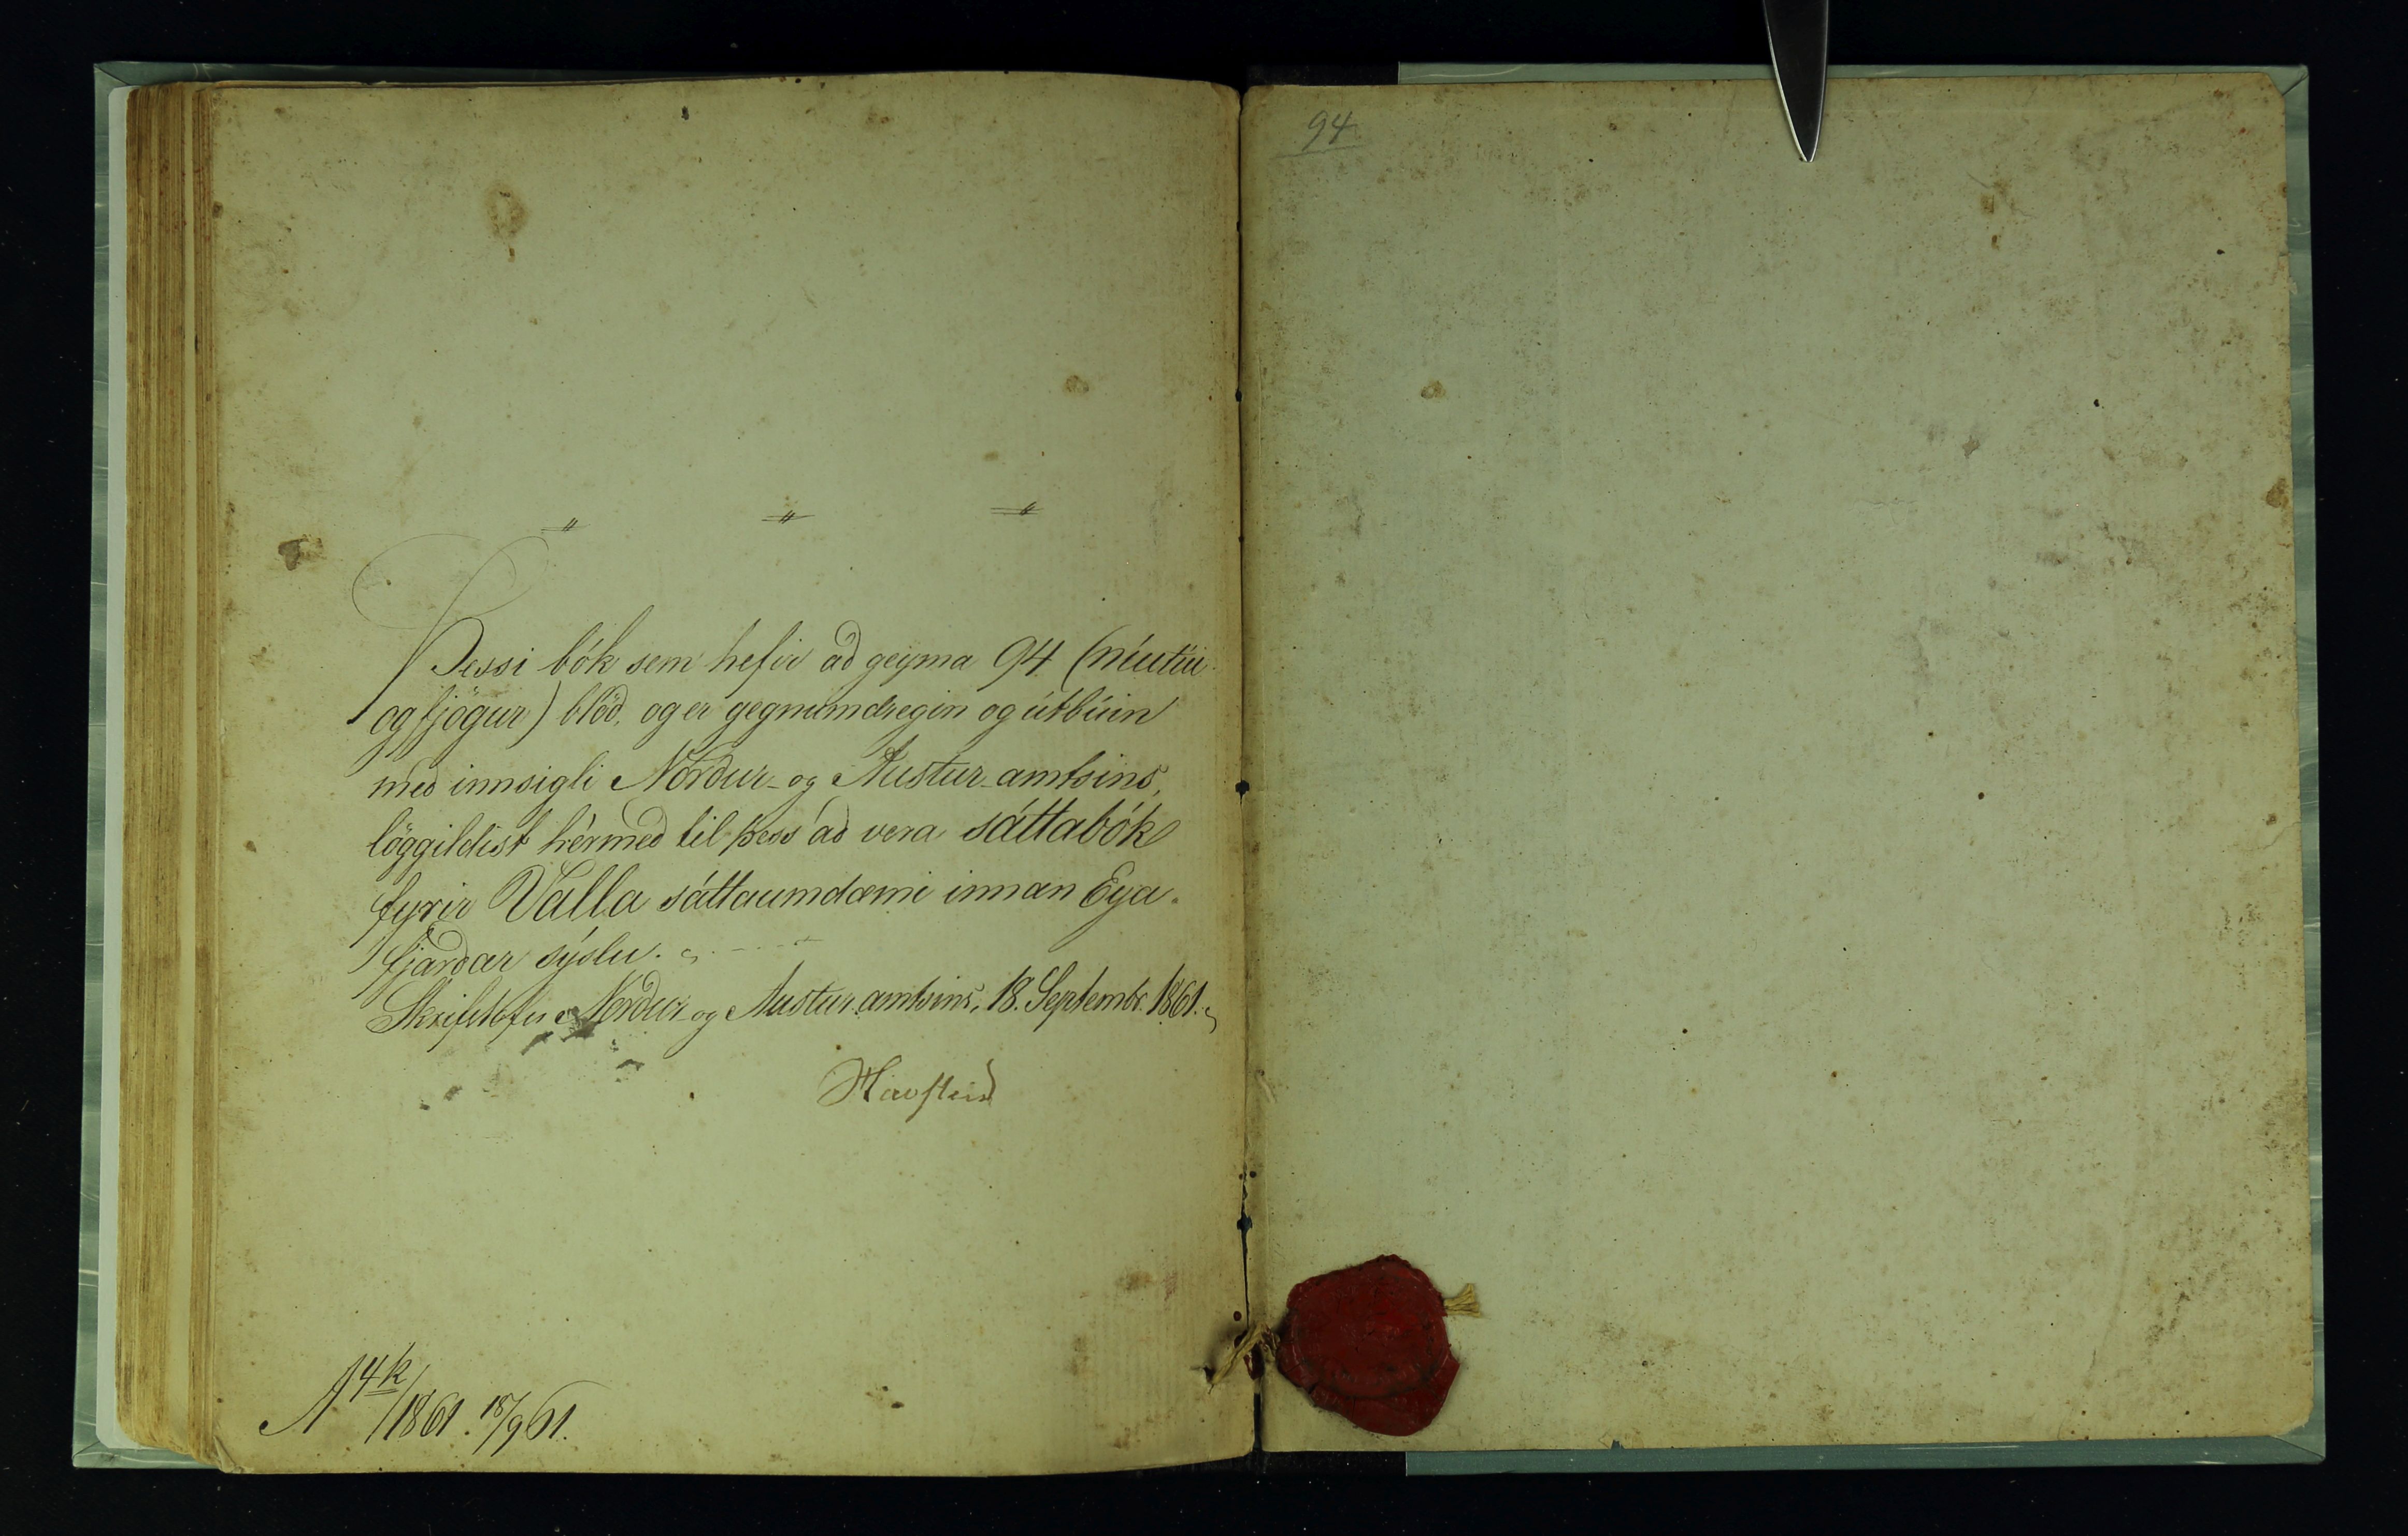 Þessi bók sem hefir að geyma 94 (níutíu
og fjögur) blöð, og er gegnumdregin og útbúin
með innsigli Norður- og Austur-amtsins,
löggildist hérmeð til þess að vera sáttabók
fyrir Valla sáttaumdæmi innan Eya-
fjarðar sýslu.
Skrifstofu Norður- og Austur-amtsins, 18. Septembr. 1861.
Havstein
A 4k/1861. 18/9 61.
94